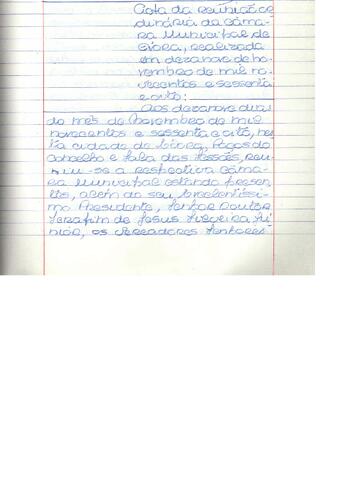 Acta da reunião or
dinária da Câma
ra Municipal de
Évora, realizada
em dezanove de no
vembro de mil no
vecentos e sessenta
e oito:
Aos dezanove dias
do mês de Novembro de mil
novecentos e sessenta e oito, nes
ta cidade de Évora, Paços do
Concelho e Sala das Sessões, reu
niu-se a respectiva Câma
ra Municipal estando presen
tes, além do seu Excelentíssi
mo Presidente, Senhor Doutor
Serafim de Jesus Silveira Jú
nior, os Vereadores Senhores